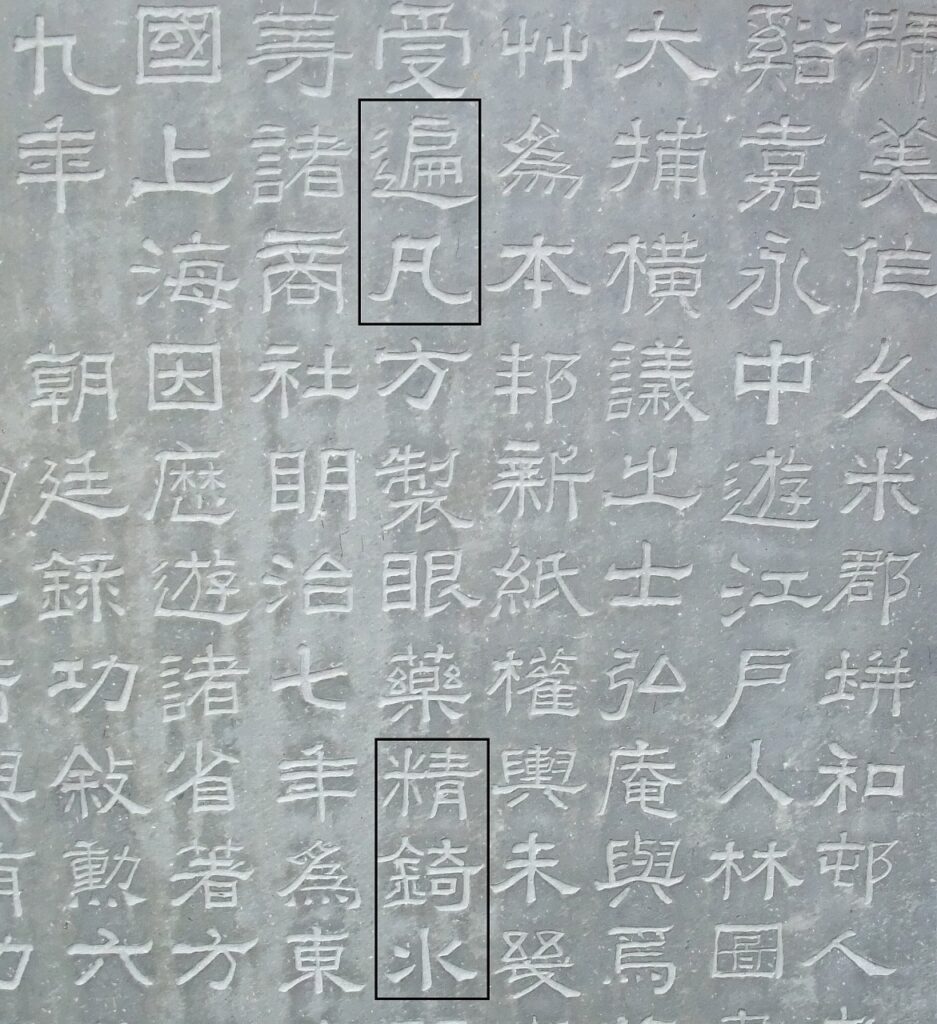 美作久米郡垪和邨人
谿嘉永中遊江戸人林圖
大捕橫議之士弘庵與焉
艸為本邦新紙權輿未幾
受遍凡方製眼藥精錡水
諸商社明治七年為東
國上海因歴遊諸省著方
九年 朝廷錄功敍勲六